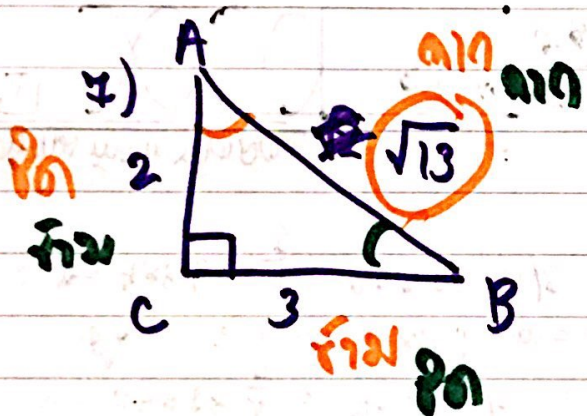 A
7)
ฉาก ฉาก
√13
ชิด 2
ข้าม
C 3 B
ข้าม ชิด